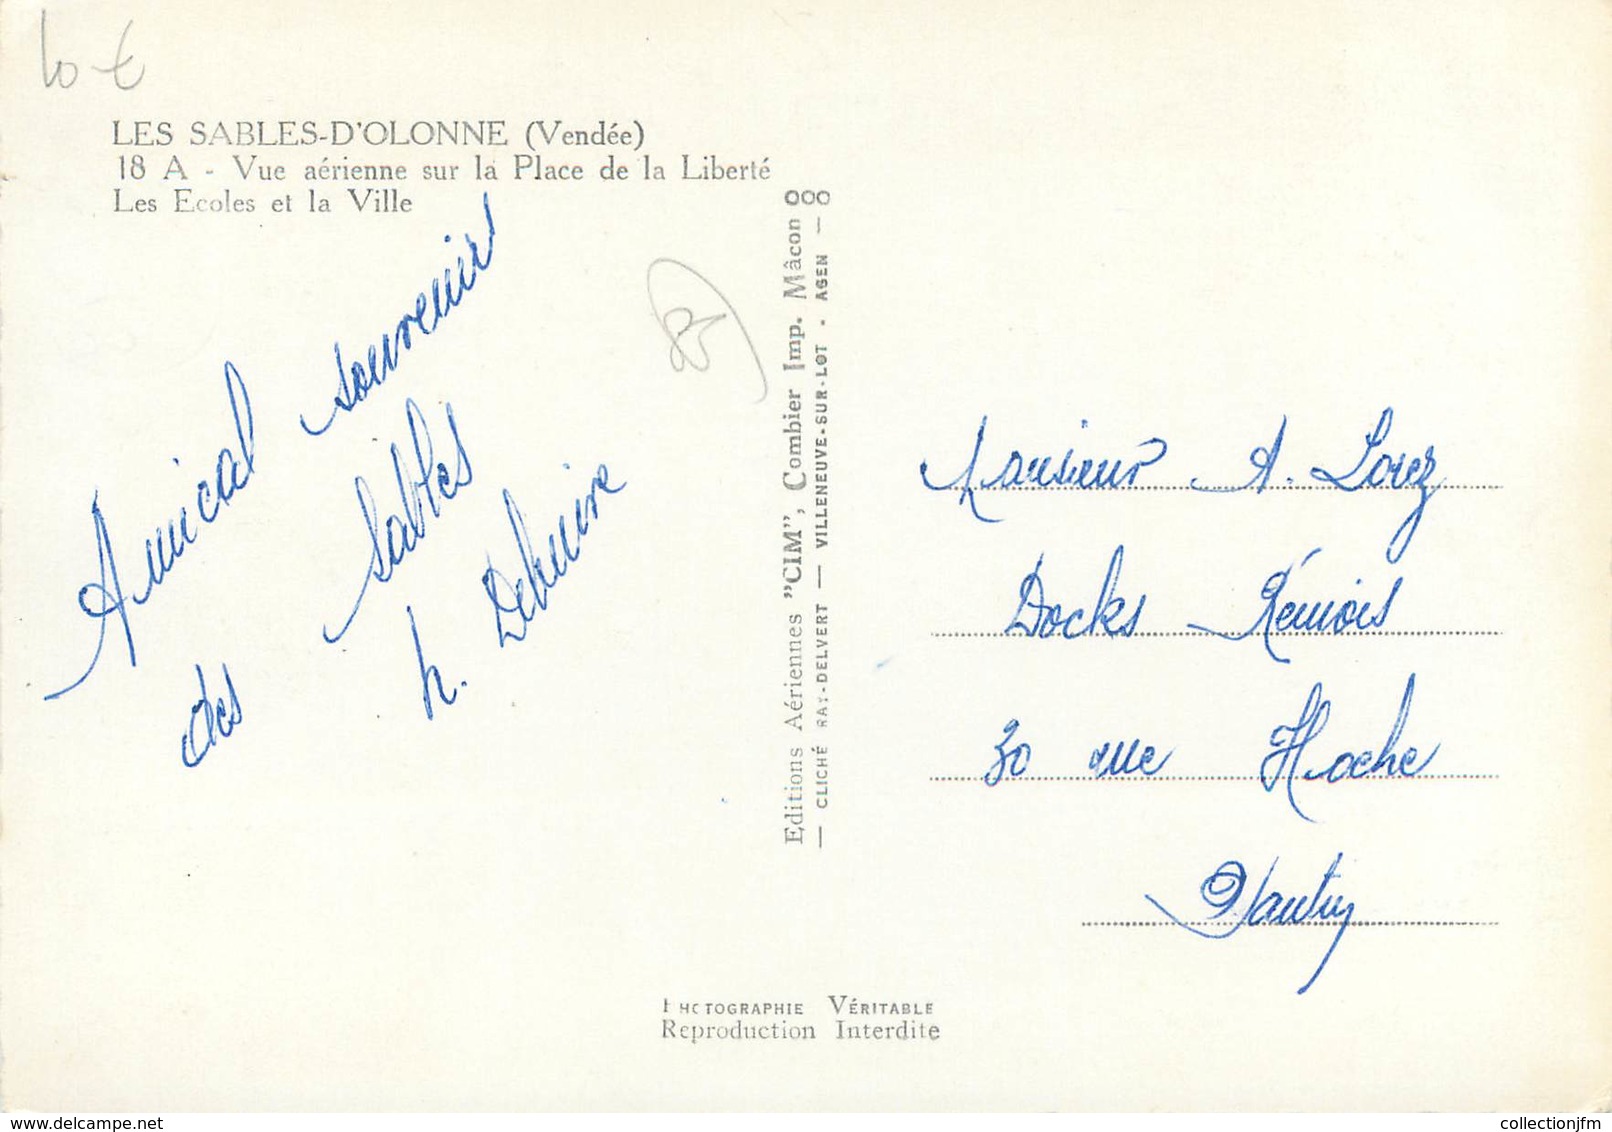 10 €
LES SABLES-D'OLONNE (Vendée)
18 A - Vue aérienne sur la Place de la Liberté
Les Ecoles et la Ville
Amical souvenir
des Sables
h.
Editions Aériennes "CIM", Combier Imp. Mâcon
— CLICHÉ RAY-DELVERT — VILLENEUVE-SUR-LOT - AGEN —
Monsieur A. Lorez
Docks Rémois
30 rue Hoche
Pantin
PHOTOGRAPHIE VÉRITABLE
Reproduction Interdite
collectionjfm